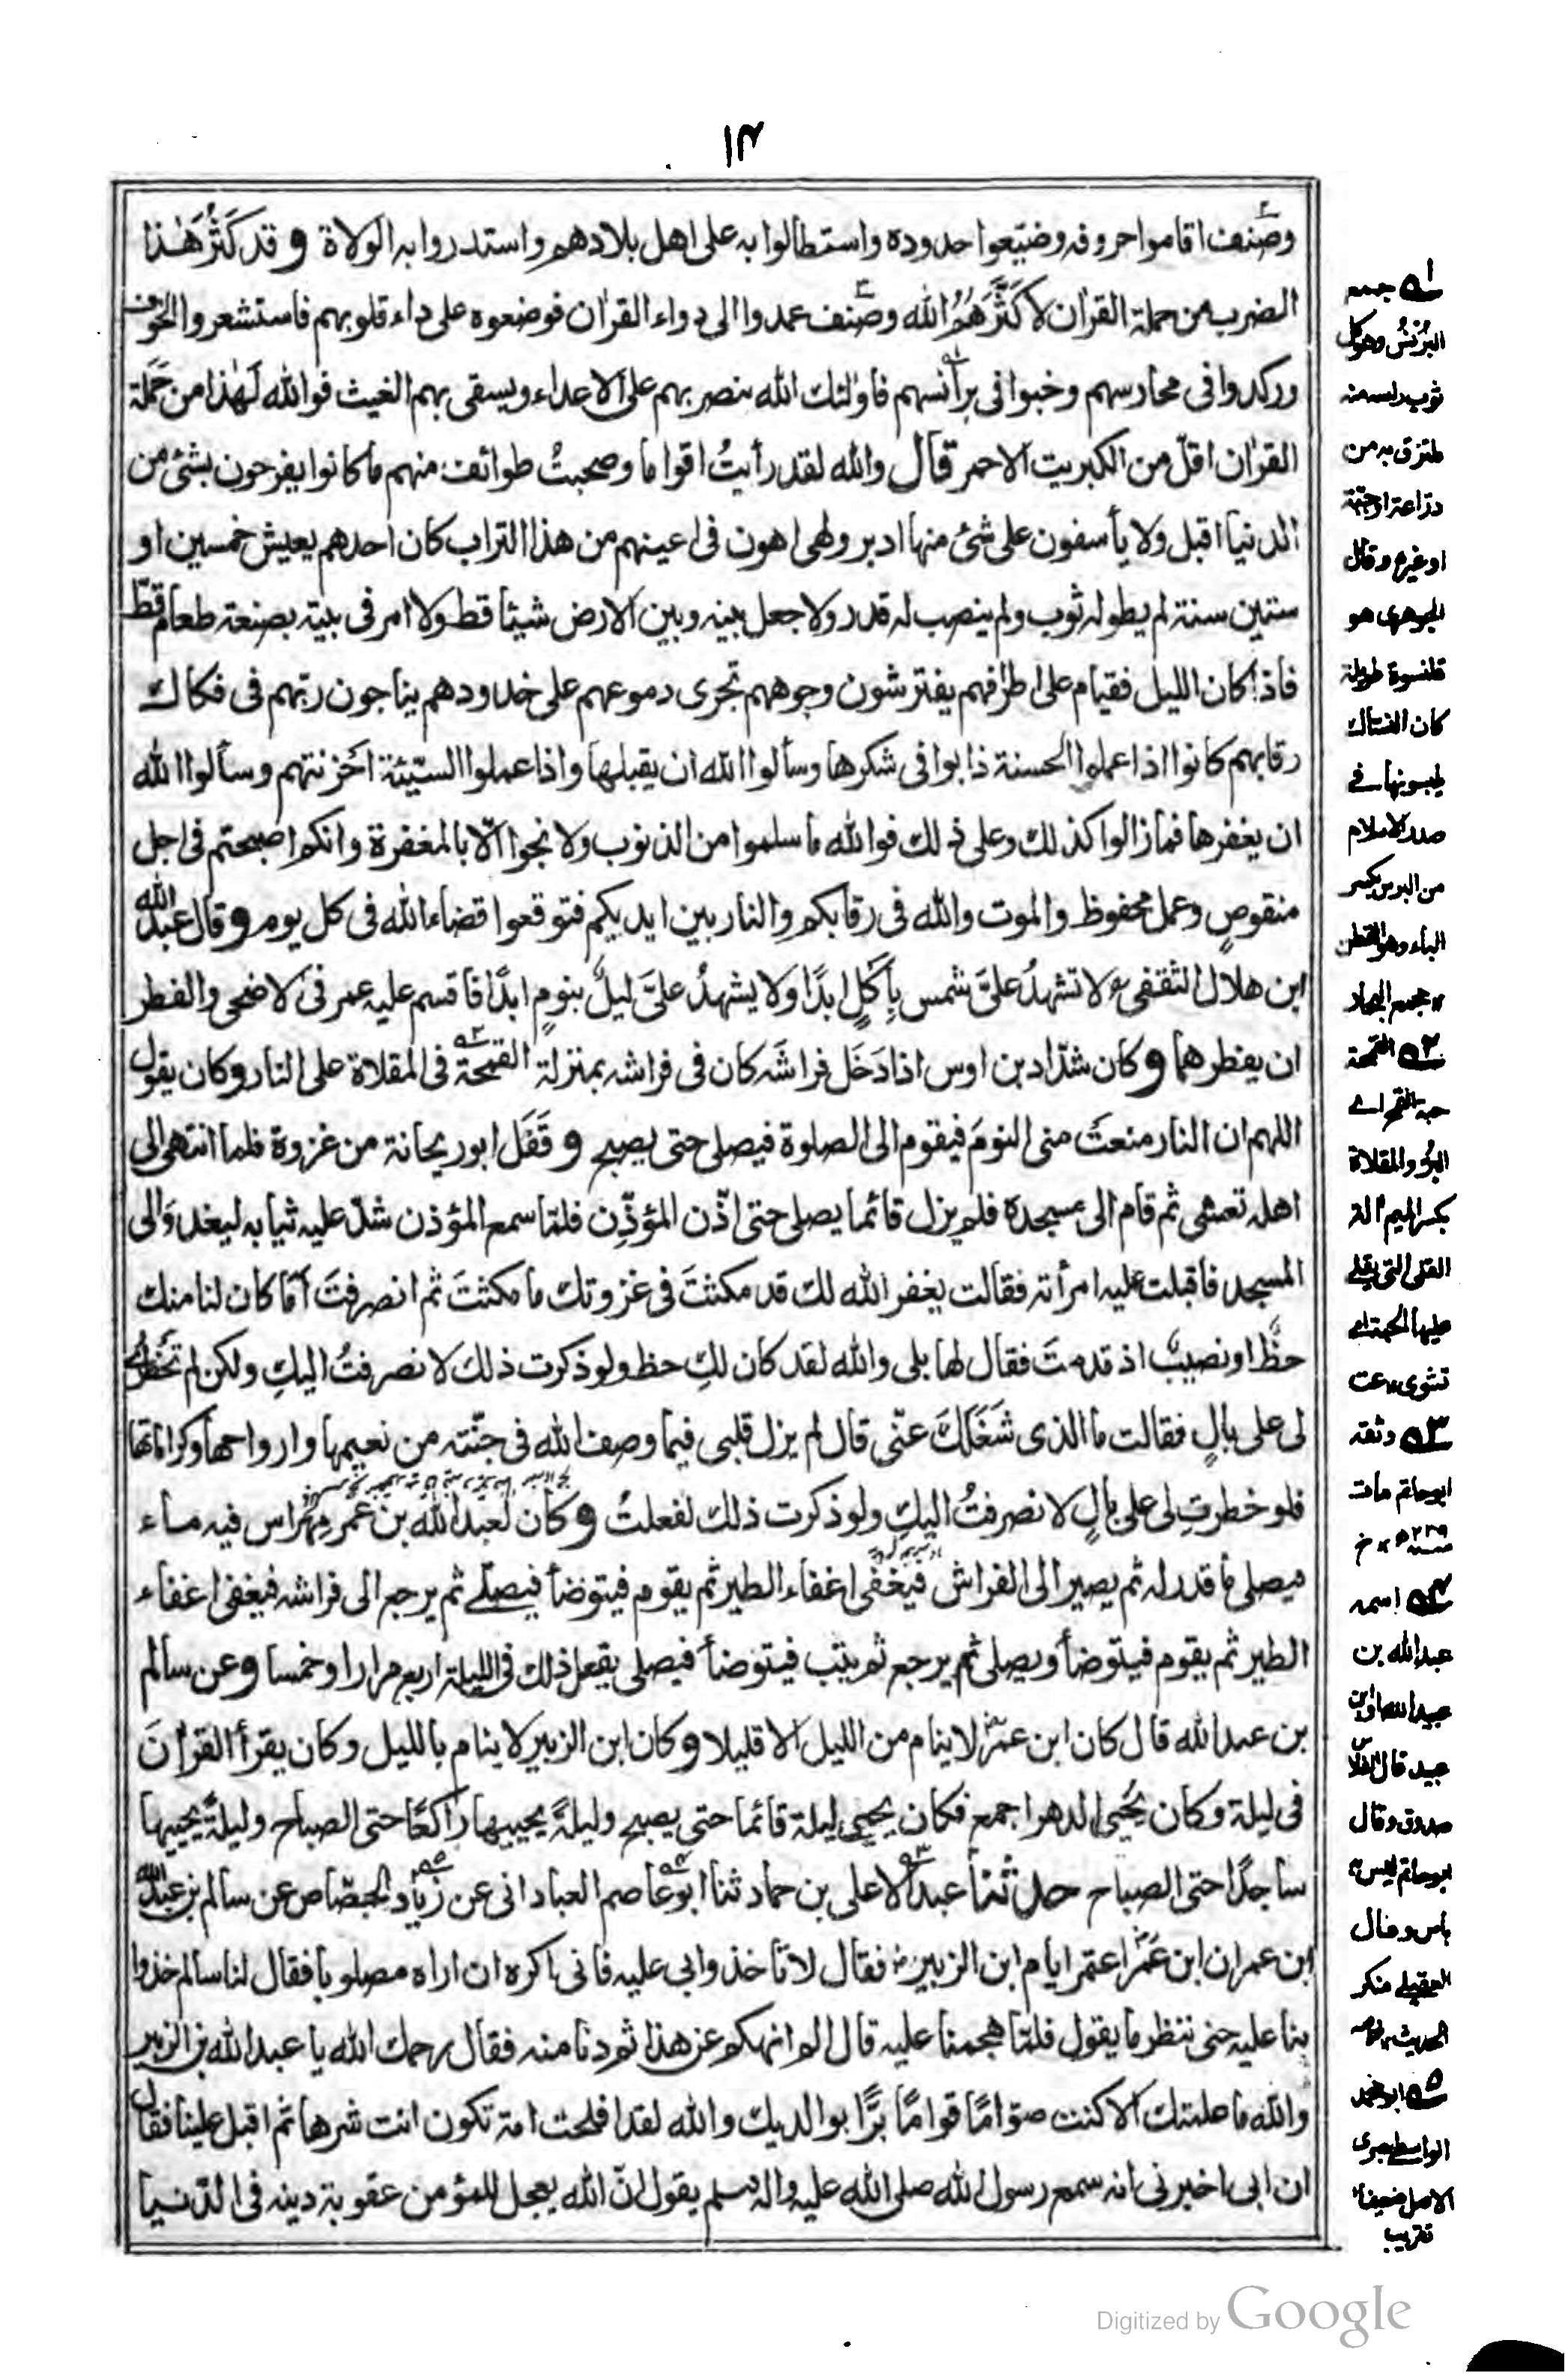 ١٣
وصنف اقاموا حروفه وضيّعوا حدوده واستطالوا به على اهل بلادهم واستدروا به الولاة وقد كَثُرَ هٰذا
الضرب من حملة القرآن لا كَثَّرَهُمُ الله وصنف عمدوا الى دواء القرآن فوضعوه على داء قلوبهم فاستشعروا الخوف
وركدوا فى محاريبهم وخبوا فى برانسهم فاولئك الله ينصر بهم على الاعداء ويسقى بهم الغيث فوالله لَهٰذا من حَمَلة
القرآن اقلّ من الكبريت الاحمر قال والله لقد رأيتُ اقواما وصحبتُ طوائف منهم ما كانوا يفرحون بشئ من
الدنيا اقبل ولا يأسفون على شئ منها ادبر ولهى اهون فى اعينهم من هذا التراب كان احدهم يعيش خمسين او
ستين سنة لم يطو له ثوب ولم ينصب له قدر ولا جعل بينه وبين الارض شيئا قط ولا امر فى بيته بصنعة طعام قطّ
فاذا كان الليل فقيام على اطرافهم يفترشون وجوههم تجرى دموعهم على خدودهم يناجون ربّهم فى فكاك
رقابهم كانوا اذا عملوا الحسنة ذابوا فى شكرها وسألوا الله ان يقبلها واذا عملوا السيّئة احزنتهم وسألوا الله
ان يغفرها فما زالوا كذلك وعلى ذلك فوالله ما سلموا من الذنوب ولا نجوا الّا بالمغفرة وانكم اصبحتم فى اجل
منقوصٍ وعمل محفوظ والموت والله فى رقابكم والنار بين ايديكم فتوقعوا قضاء الله فى كل يوم وقال عبد الله
ابن هلال الثقفى لا تشهدُ علىّ شمس بأكلٍ ابدًا ولا يشهدُ علىّ ليلٌ بنومٍ ابدًا فاقسم عليه عمر فى الاضحى والفطر
ان يفطرهما وكان شدّاد بن اوس اذا دَخَل فراشَه كان فى فراشه بمنزلة القمحة فى المقلاة على النار وكان يقول
اللهم ان النار منعتْ منى النومَ فيقوم الى الصلوة فيصلى حتى يصبح وقَفَل ابو ريحانة من غزوة فلما انتهى الى
اهله تعشى ثم قام الى مسجده فلم يزل قائما يصلى حتى اذّن المؤذِّن فلمّا سمع المؤذن شدّ عليه ثيابه ليغدو الى
المسجد فاقبلت عليه امرأته فقالت يغفر الله لك قد مكثتَ فى غزوتك ما مكثتَ ثم انصرفتَ اَمَا كان لنا منك
حظٌّ او نصيبٌ اذ قدمتَ فقال لها بلى والله لقد كان لكِ حظ ولو ذكرت ذلك لانصرفتُ اليكِ ولكن لم تخطرى
لى على بالٍ فقالت ما الذى شَغَلَكَ عنّى قال لم يزل قلبى فيما وصف الله فى جنّته من نعيمها وازواجها وكراماتها
فلو خطرتِ لى على بالٍ لانصرفتُ اليكِ ولو ذكرت ذلك لفعلتُ وكان لعبد الله بن عمر مِهْراس فيه ماء
فيصلى ما قدر له ثم يصير الى الفراش فيغفى اغفاء الطير ثم يقوم فيتوضأ فيصلّى ثم يرجع الى فراشه فيغفى اغفاء
الطير ثم يقوم فيتوضأ ويصلى ثم يرجع ثم يثب فيتوضأ فيصلى يفعل ذلك فى الليلة اربع مرارا وخمسا وعن سالم
بن عبد الله قال كان ابن عمر لا ينام من الليل الا قليلا وكان ابن الزبير لا ينام بالليل وكان يقرأ القرآنَ
فى ليلة وكان يُحيى الدهر اجمع فكان يحيى ليلة قائما حتى يصبح وليلةً يحييها راكعًا حتى الصباح وليلةً يحييها
ساجدًا حتى الصباح حدثنا عبد الاعلى بن حماد ثنا ابو عاصم العبادانى عن زياد الجصّاص عن سالم بن عبد الله
ابن عمر ان ابن عُمَر اعتمر ايام ابن الزبير فقال لا تأخذوا بى عليه فانى اكره ان اراه مصلوبا فقال لنا سالم خذوا
بنا عليه حتى ننظر ما يقول فلمّا هجمنا عليه قال الم انهكم عن هذا ثم دنا منه فقال رحمك الله يا عبد الله بن الزبير
والله ما علمتك الا كنت صوّامًا قوامًا برًّا بوالديك والله لقد افلحت امة تكون انت شرها ثم اقبل علينا فقال
ان ابى اخبرنى انه سمع رسول الله صلى الله عليه واله وسلم يقول انّ الله يعجل للمؤمن عقوبة دينه فى الدّنيا
١ جمع
البُرْنُسُ وهو كل
ثوب راسه منه
ملتزق به من
درّاعة او جبّة
او غيره وقال
الجوهرى هو
قلنسوة طويلة
كان النساك
يلبسونها فى
صدر الاسلام
من البرس بكسر
الباء وهو القطن
مجمع البحار
٢ القمحة
حبة القمح اى
البر والمقلاة
بكسر الميم آلة
القلى التى يقلى
عليها الحبة اى
تشوى
٣ وثقه
ابو حاتم مات
سنة ٢٣٧
٤ اسمه
عبد الله بن
عبيد الله او ابن
عبيد قال الفلاس
صدوق وقال
ابو حاتم ليس به
بأس وقال
العقيلى منكر
الحديث
٥ ابو محمد
الواسطى بصرى
الاصل ضعيف
تقريب
Digitized by Google